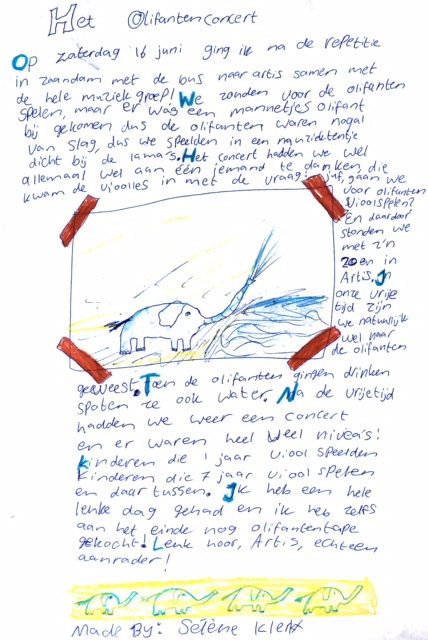 Het Olifantenconcert
Op zaterdag 16 juni ging ik na de repetitie
in zaandam met de bus naar artis samen met
de hele muziekgroep! We zouden voor de olifanten
spelen, maar er was een mannetjes olifant
bij gekomen dus de olifanten waren nogal
van slag, dus we speelden in een muziektentje
dicht bij de lama's. Het concert hadden we wel
allemaal wel aan één jemand te danken, die
kwam de vioolles in met de vraag: juf, gaan we
voor olifanten
viool spelen?
En daardoor
stonden we
met z'n
zoen in
Artis. In
onze vrije
tijd zijn
we natuurlijk
wel naar
de olifanten
geweest. Toen de olifanten gingen drinken
spoten ze ook water. Na de vrijetijd
hadden we weer een concert
en er waren heel veel nivea's!
kinderen die 1 jaar viool speelden
kinderen die 7 jaar viool spelen
en daar tussen. Ik heb een hele
leuke dag gehad en ik heb zelfs
aan het einde nog olifantentape
gekocht! Leuk hoor, Artis, echt een
aanrader!
Made By: Sélène Klerx